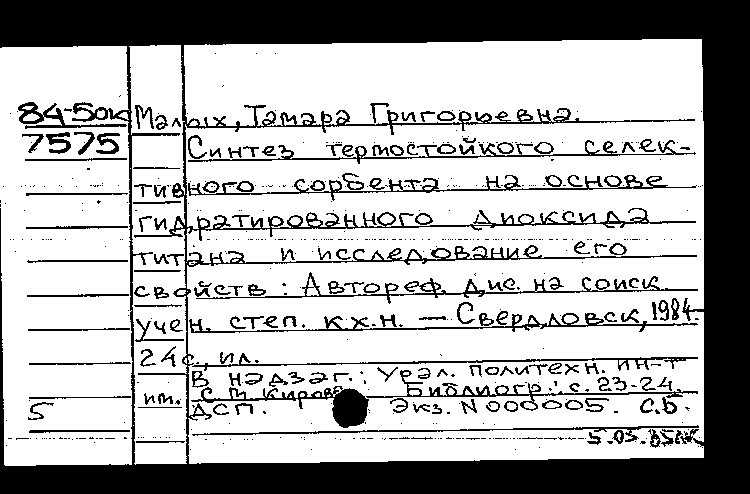 84-5ок Малых, Тамара Григорьевна.
7575 Синтез термостойкого селек-
тивного сорбента на основе
гидратированного диоксида
титана и исследование его
свойств : Автореф. дис. на соиск.
учен. степ. к.х.н. — Свердловск, 1984.-
24 с., ил.
В надзаг.: Урал. политехн. ин-т
им. С.М. Кирова. Библиогр.: с. 23-24.
5 ДСП. Экз. N 000005. С.Б.
5.03.85